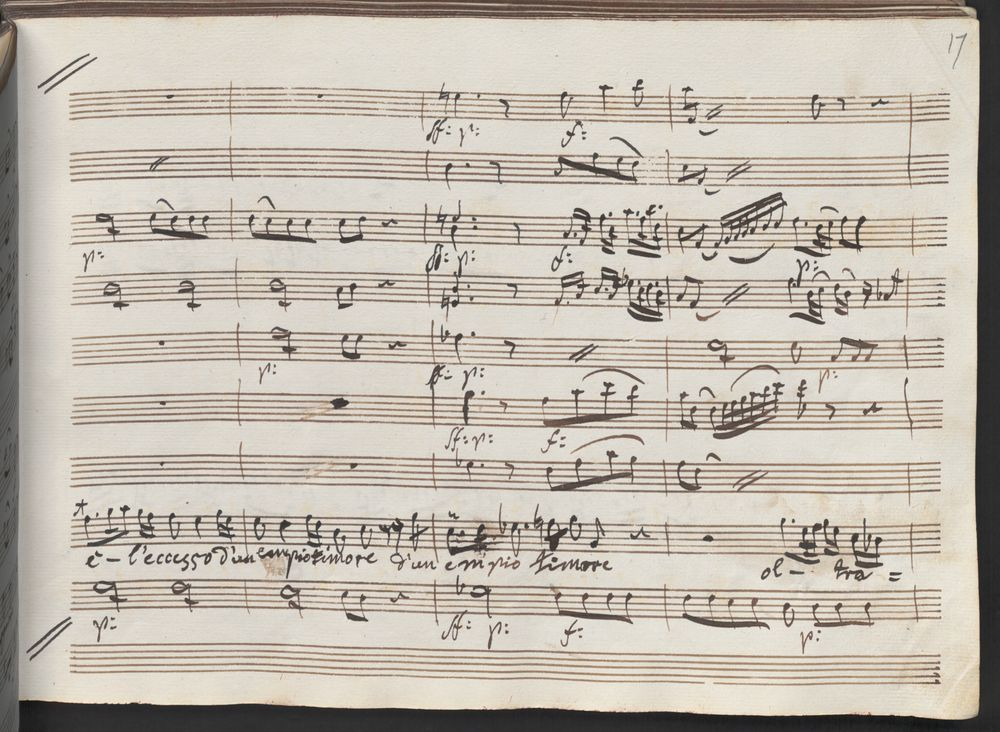 17
ff: p: f:
p: ff: p: f: p:
p: ff: p: p:
ff: p: f:
è - l'eccesso d'un empio timore d'un empio timore ol - tra =
p: ff: p: f: p: